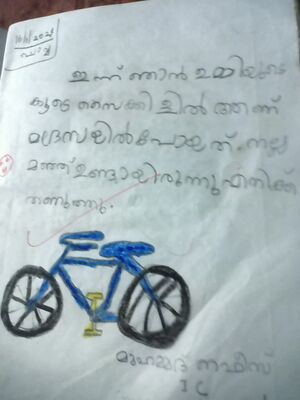 ഇന്ന് ഞാൻ ഉമ്മിയുടെ
കൂടെ സൈക്കിളിൽ ആണ്
മദ്രസയിൽപോയത്. നല്ല
മഞ്ഞ്ഉണ്ടായിരുന്നുഎനിക്ക്
തണുത്തു.
മുഹമ്മദ് നഫീസ്
1 C